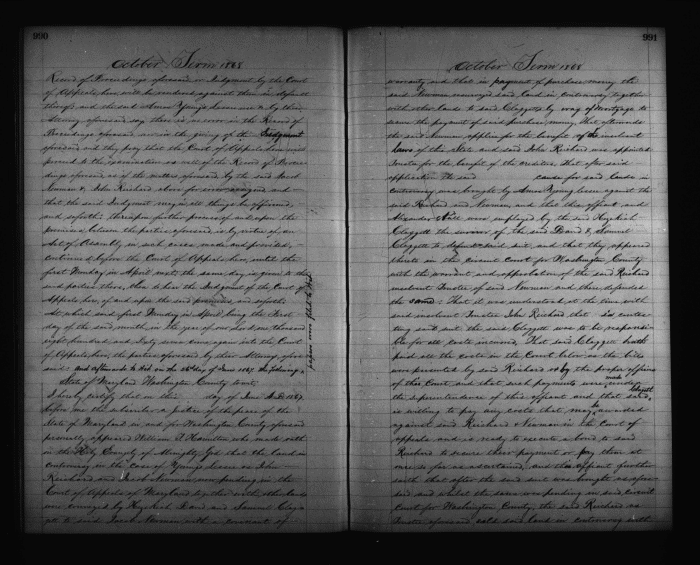 990
October Term 1868
Record of Proceedings aforesaid or Judgment by the Court
of Appeals here will be rendered against them in default
thereof and the said Amos Young's lessee and by their
Attorney aforesaid say there is no error in the Record of
Proceedings aforesaid nor in the giving of the Judgment
aforesaid and they pray that the Court of Appeals here will
proceed to the examination as well of the Record of Procee-
dings aforesaid as of the matters aforesaid by the said Jacob
Newman & John Reichard above for error assigned and
that the said Judgment may in all things be affirmed,
and so forth: Thereupon further process of and upon the
premises between the parties aforesaid is by virtue of an
Act of Assembly in such cases made and provided,
continued before the Court of Appeals here, until the
first Monday in April next the same day is given to the
said parties there, then to hear the Judgment of the Court of
Appeals here, of and upon the said premises, and so forth.
At which said first Monday in April being the first
day of the said month in the year of our Lord one thousand
eight hundred and sixty seven came again into the Court
of Appeals here, the parties aforesaid by their Attorneys afore-
said: and afterwards to Wit, on the day of June 1867 the following
papers were filed to Wit:
State of Maryland Washington County towit:
I hereby certify that on this day of June A.D. 1867.
before me the subscriber a justice of the peace of the
State of Maryland in and for Washington County aforesaid
personally appeared William T. Hamilton who made oath
on the Holy Evangely of Almighty God that the land in
controversy in the case of Young's lessee vs John
Reichard and Jacob Newman now pending in the
Court of Appeals of Maryland together with other lands
was conveyed by Hezekiah David and Samuel Clagg-
ett to said Jacob Newman with a covenant of
991
October Term 1868
warranty and that in payment of purchase money the
said Newman reconveyed said land in controversy together
with other lands to said Claggetts by way of Mortgage to
secure the payment of said purchase money, That afterwards
the said Newman applied for the benefit of the insolvent
laws of this State and said John Reichard was appointed
Trustee for the benefit of the creditors, That after said
application the said cause for said lands in
controversy was brought by Amos Young lessee against the
said Reichard and Newman, and that this affiant and
Alexander Neill were employed by the said Hezekiah
Claggett the survivor of the said David & Samuel
Claggett to defend said suit, and that they appeared
thereto in the circuit Court for Washington County
with the consent and approbation of the said Reichard
insolvent Trustee of said Newman and there defended
the same: That it was understood at the time with
said insolvent Trustee John Reichard that in contes-
ting said suit the said Claggett was to be responsi-
ble for all costs incurred, That said Claggett hath
paid all the costs in the Court below as the bills
were presented by said Reichard or by the proper officers
of this Court and that such payments were made under
the superintendence of this affiant and that said Claggett
is willing to pay any costs that may be awarded
against said Reichard & Newman in the Court of
appeals and is ready to execute a bond to said
Reichard to secure their payment or pay them at
once so far as ascertained, and this affiant further
saith that after the said suit was brought as afore-
said and whilst the same was pending in said circuit
court for Washington County, the said Reichard as
Trustee aforesaid sold said land in controversy with